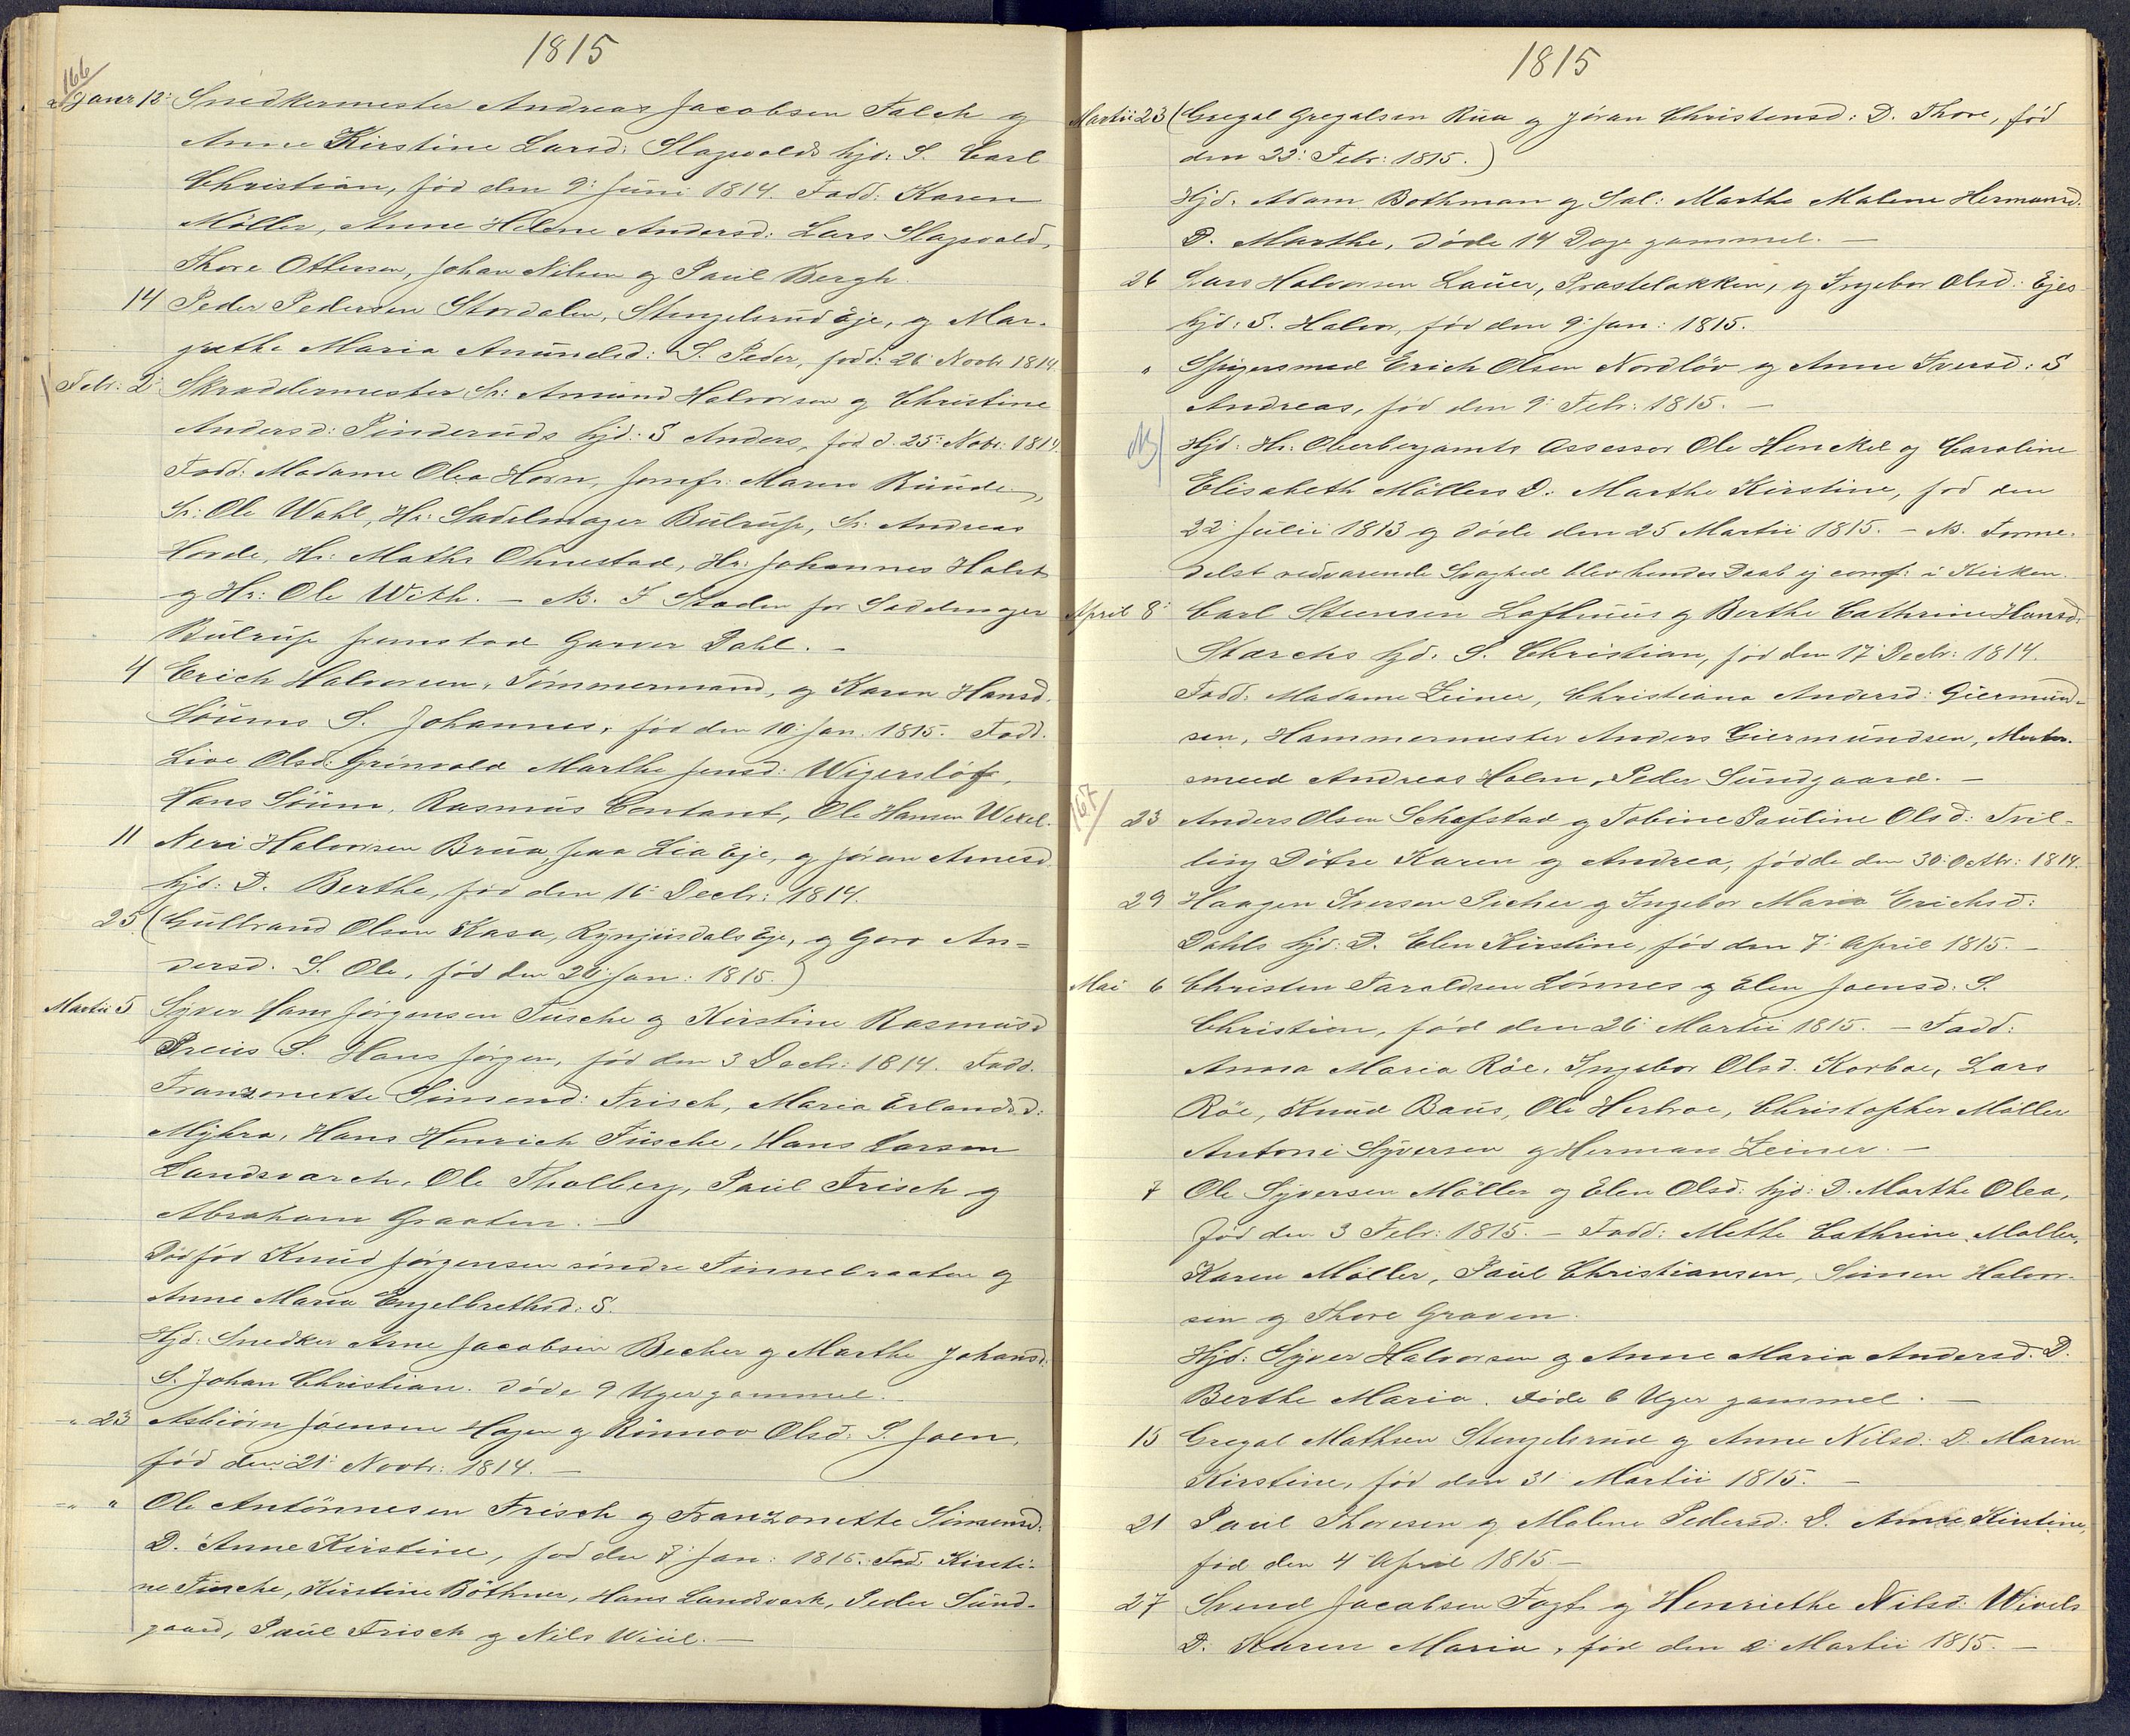 1815
166
Janr 12: Snedkermester Andreas Jacobsen Falch og
Anne Kirstine Larsd: Slagsvolds hjd: S. Carl
Christian, fød den 9: Juni 1814. Fadd: Karen
Möller, Anne Helene Andersd: Lars Slagsvold,
Thore Ottersen, Johan Nilsen og Paul Bergh.
14 Peder Pedersen Stordalen, Stengelsrud Eje, og Mar-
grethe Maria Amundsd: S. Peder, född: 26 Novbr 1814.
Febr: 2 Skræddermester Sr: Amund Halvorsen og Christine
Andersd: Pinderuds hjd: S Anders, fød d. 25: Nobr: 1814.
Fadd: Madame Olea Horn, Jomfr: Maren Ruude,
Sr: Ole Wahl, Hr: Sadelmager Bülrup, Sr: Andreas
Horde, Hr: Maths Ohnestad, Hr: Johannes Holst
og Hr: Ole With. - NB. I Staden for Sadelmager
Bülrup fremstod Garver Dahl. -
4 Erich Halvorsen, Tömmermand, og Karen Hansd.
Söums S. Johannes, fød den 10: Jan. 1815. Fadd.
Live Olsd: Grinvold Marthe Jensd: Wigersløf,
Hans Söum, Rasmus Contant, Ole Hansen Wexel.
11 Neri Halvorsen Brua, paa Lia Eje, og Jöran Arnesd
hjd: D. Berthe, fød den 16: Decbr: 1814.
25. (Gulbrand Olsen Kasa, Rynjusdals Eje, og Goro An=
dersd. S. Ole, fød den 20: Jan: 1815.)
Martii 5 Syver Hans Jörgensen Fusche og Kirstine Rasmusd
Preus S. Hans Jörgen, fød den 3 Decbr: 1814. Fadd.
Franzonette Simensd: Frisch, Maria Erlandsd:
Myhra, Hans Henrich Fusche, Hans Larsen
Landsvarch, Ole Tholberg, Paul Frisch og
Abraham Graaten. -
Dödfød Knud Jörgensen söndre Finnebraaten og
Anne Maria Engelbrethsd: S.
Hjd: Snedker Arne Jacobsen Becher og Marthe Johansd.
S. Johan Christian. døde 9 Uger gammel. -
-" 23 Asbiörn Joensen Hagen og Rönnov Olsd: S. Joen,
fød den 21: Novbr: 1814. -
-" " Ole Antönnesen Frisch og Franzonette Simensd:
D. Anne Kirstine, fød den 7: Jan: 1815. Fad Kirsti-
ne Fusche, Kirstine Böthner, Hans Landsvark, Peder Sund-
gaard, Paul Frisch og Nils Wiül. -
1815
Martii 23 (Gregal Gregalsen Rua og Jöran Christensd: D. Thore, fød
den 22: Febr: 1815.)
Hjd. Adam Bothman og Sal: Marthe Malene Hermansd.
D. Marthe, døde 14 Dage gammel. -
26 Lars Halvorsen Lauer, Præstelökken, og Ingebor Olsd: Ejes
hjd: S. Halvor, fød den 9: Jan: 1815.
" Spigersmed Erich Olsen Nordlöv og Anne Iversd: S
Andreas, fød den 9: Febr: 1815. -
NB Hjd: Hr: Oberbergamts Assessor Ole Henckel og Caroline
Elisabeth Möllers D. Marthe Kirstine, fød den
22: Julii 1813 og døde den 25 Martii 1815. - NB. Forme-
delst vedvarende Svaghed blev hendes Daab ej conf: i Kirken.
April 8: Carl Steensen Lofthuus og Berthe Cathrine Hansd.
Stærchs hjd. S. Christian, fød den 17: Decbr: 1814.
Fadd. Madame Zeiner, Christiana Andersd: Giermund-
sen, Hammermester Anders Giermundsen, Mester-
smed Andreas Holm, Peder Sundgaard. -
167
23 Anders Olsen Schafstad og Tobine Pauline Olsd: Tvil-
ling Dötre Karen og Andrea, födde den 30: Octbr: 1814.
29 Haagen Iversen Picher og Ingebor Maria Erichsd:
Dahls hjd: D. Elen Kirstine, fød den 7: April 1815. -
Mai 6 Christen Taraldsen Lönnes og Elen Joensd: S.
Christian, fød den 26: Martii 1815. - Fadd:
Anna Maria Röe, Ingebor Olsd. Korboe, Lars
Röe, Knud Baus, Ole Herbroe, Christopher Möller
Antoni Syversen og Herman Zeiner. -
7 Ole Syversen Möller og Elen Olsd: hjd: D. Marthe Olea,
fød den 3 Febr: 1815. - Fadd: Mette Cathrine Möller,
Karen Möller, Paul Christiansen, Simen Halvor-
sen og Thore Graven.
Hjd: Syver Halvorsen og Anne Maria Andersd. D.
Berthe Maria. Døde 6 Uger gammel. -
15 Gregal Mathsen Stengelsrud og Anne Nilsd: D. Maren
Kirstine, fød den 31: Martii 1815. -
21 Paul Thoresen og Malene Pedersd: D. Anne Kirstine,
fød den 4 April 1815 -
27 Svend Jacobsen Fogt og Henriethe Nilsd: Wivels
D. Karen Maria, fød den 2: Martii 1815. -